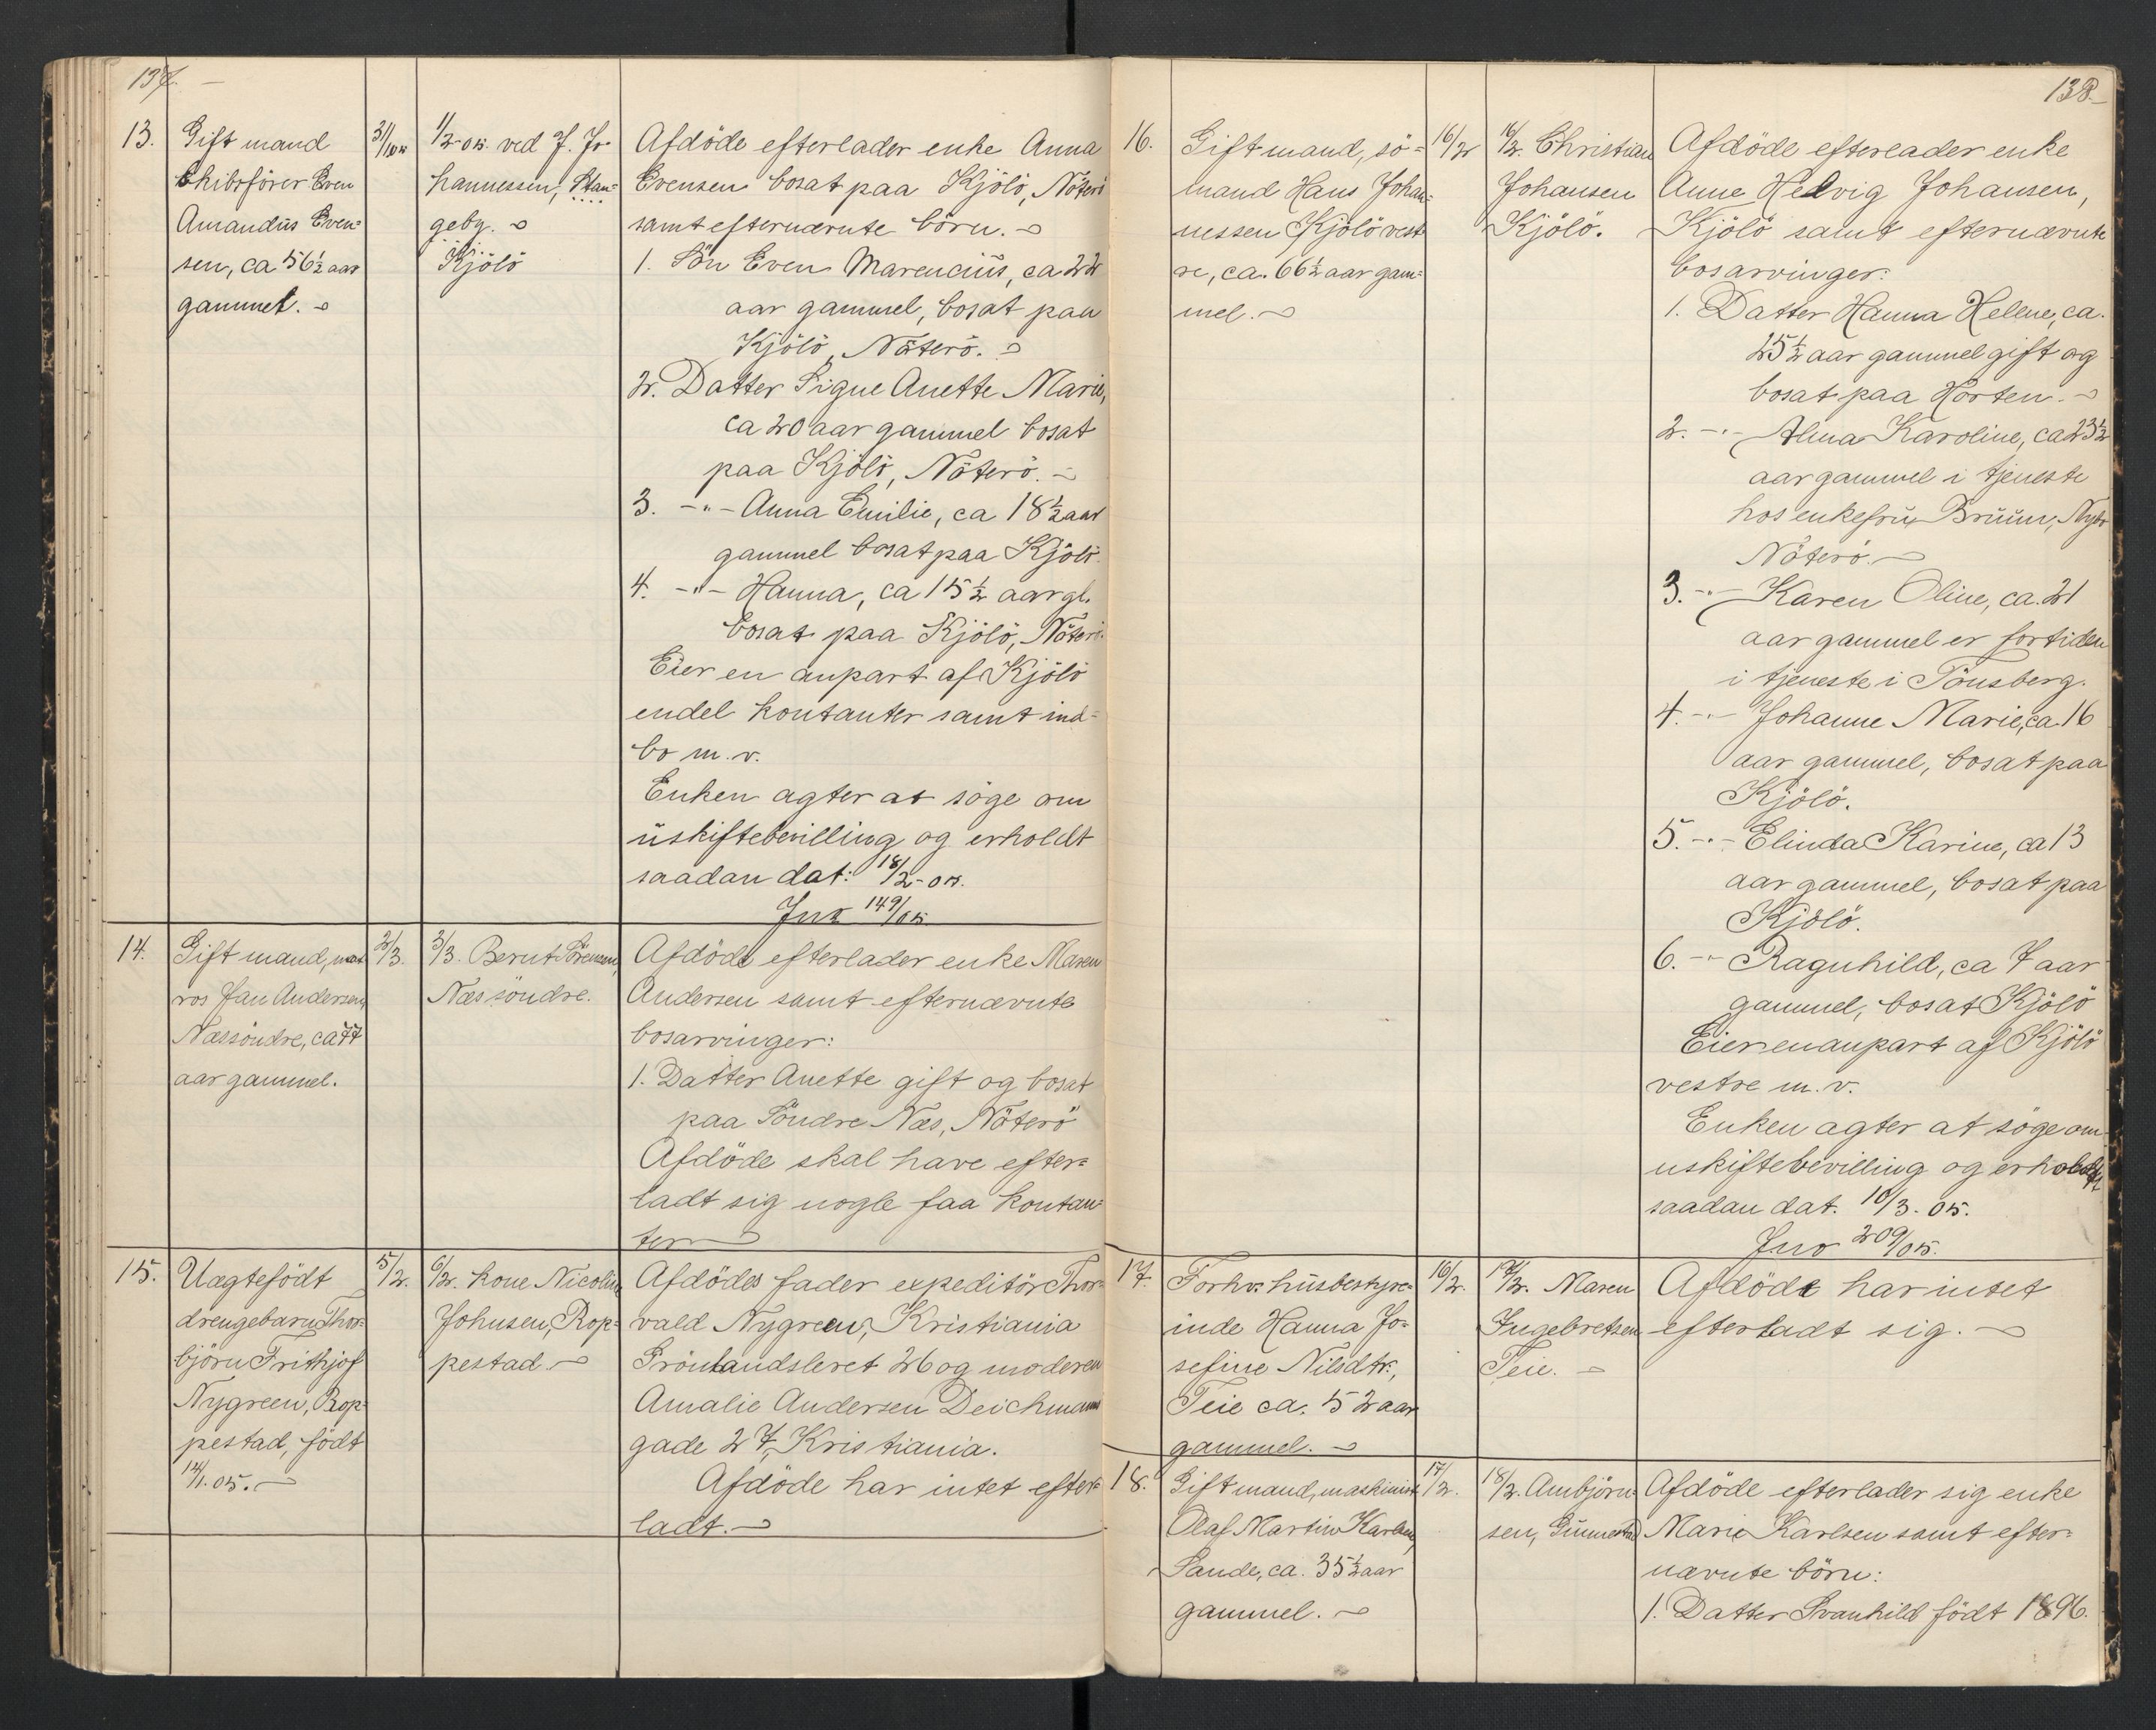 137.
13.
Gift mand
skibsförer Even
Amandus Even=
sen, ca 56½ aar
gammel.
31/1
1/2-05 ved J. Jo
hannessen, Stan=
geby.
Kjölö
Afdöde efterlader enke Anna
Evensen bosat paa Kjölö, Nöterö
samt efternævnte börn.
1. Sön Even Marencius, ca 22
aar gammel, bosat paa
Kjölö, Nöterö.
2. Datter Signe Anette Marie,
ca 20 aar gammel bosat
paa Kjölö, Nöterö.
3. -"- Anna Emilie, ca 18½ aar
gammel bosat paa Kjölö.
4. -"- Hanna, ca 15½ aar gl.
bosat paa Kjölö, Nöterö.
Eier en anpart af Kjölö
endel kontanter samt ind=
bo m. v.
Enken agter at söge om
uskiftebevilling og erholdt
saadan dat: 18/2-05.
Jno 149/05.
14.
Gift mand, mat
ros Jan Andersen,
Næs söndre, ca 77
aar gammel.
2/3.
3/3. Bernt Sörensen,
Næs söndre.
Afdöde efterlader enke Maren
Andersen samt efternævnte
bosarvinger:
1. Datter Anette gift og bosat
paa Söndre Næs, Nöterö
Afdöde skal have efter=
ladt sig nogle faa kontan=
ter
15.
Uægtefödt
drengebarn Thor=
björn Frithjof
Nygreen, Rop=
pestad, födt
14/1. 05.
5/2.
6/2. kone Nicoline
Johnsen, Rop=
pestad.
Afdödes fader expeditör Thor=
vald Nygreen, Kristiania
Grönlandsleret 26 og moderen
Amalie Andersen Deichmans
gade 27, Kristiania.
Afdöde har intet efter=
ladt.
138.
16.
Gift mand, sö=
mand Hans Johan=
nessen Kjölö vest
re, ca. 66½ aar gam=
mel.
16/2
16/2. Christian
Johansen
Kjölö.
Afdöde efterlader enke
Anne Hedvig Johansen,
Kjölö samt efternævnte
bosarvinger:
1. Datter Hanna Helene, ca.
25½ aar gammel gift og
bosat paa Horten.
2. -"- Alma Karoline, ca 23½
aar gammel i tjeneste
hos enkefru Bruun, Nybø
Nöterö.
3. -"- Karen Oline, ca. 21
aar gammel er fortiden
i tjeneste i Tönsberg.
4. -"- Johanne Marie, ca. 16
aar gammel, bosat paa
Kjölö.
5. -"- Elinda Karine, ca 13
aar gammel, bosat paa
Kjölö.
6. -"- Ragnhild, ca 7 aar
gammel, bosat Kjölö
Eier en anpart af Kjölö
vestre m. v.
Enken agter at söge om
uskiftebevilling og erholdt
saadan dat. 10/3. 05.
Jno 209/05.
17.
Forhv. husbestyre=
inde Hanna Jo=
sefine Nilsdtr.,
Teie ca. 52 aar
gammel.
16/2.
17/2. Maren
Ingebretsen
Teie.
Afdöde har intet
efterladt sig.
18.
Gift mand, maskinist
Olaf Martin Karlsen,
Sande, ca. 35½ aar
gammel.
17/2.
18/2. Ambjörn=
sen,
Afdöde efterlader sig enke
Marie Karlsen samt efter=
nævnte börn:
1. Datter Svanhild födt 1896.